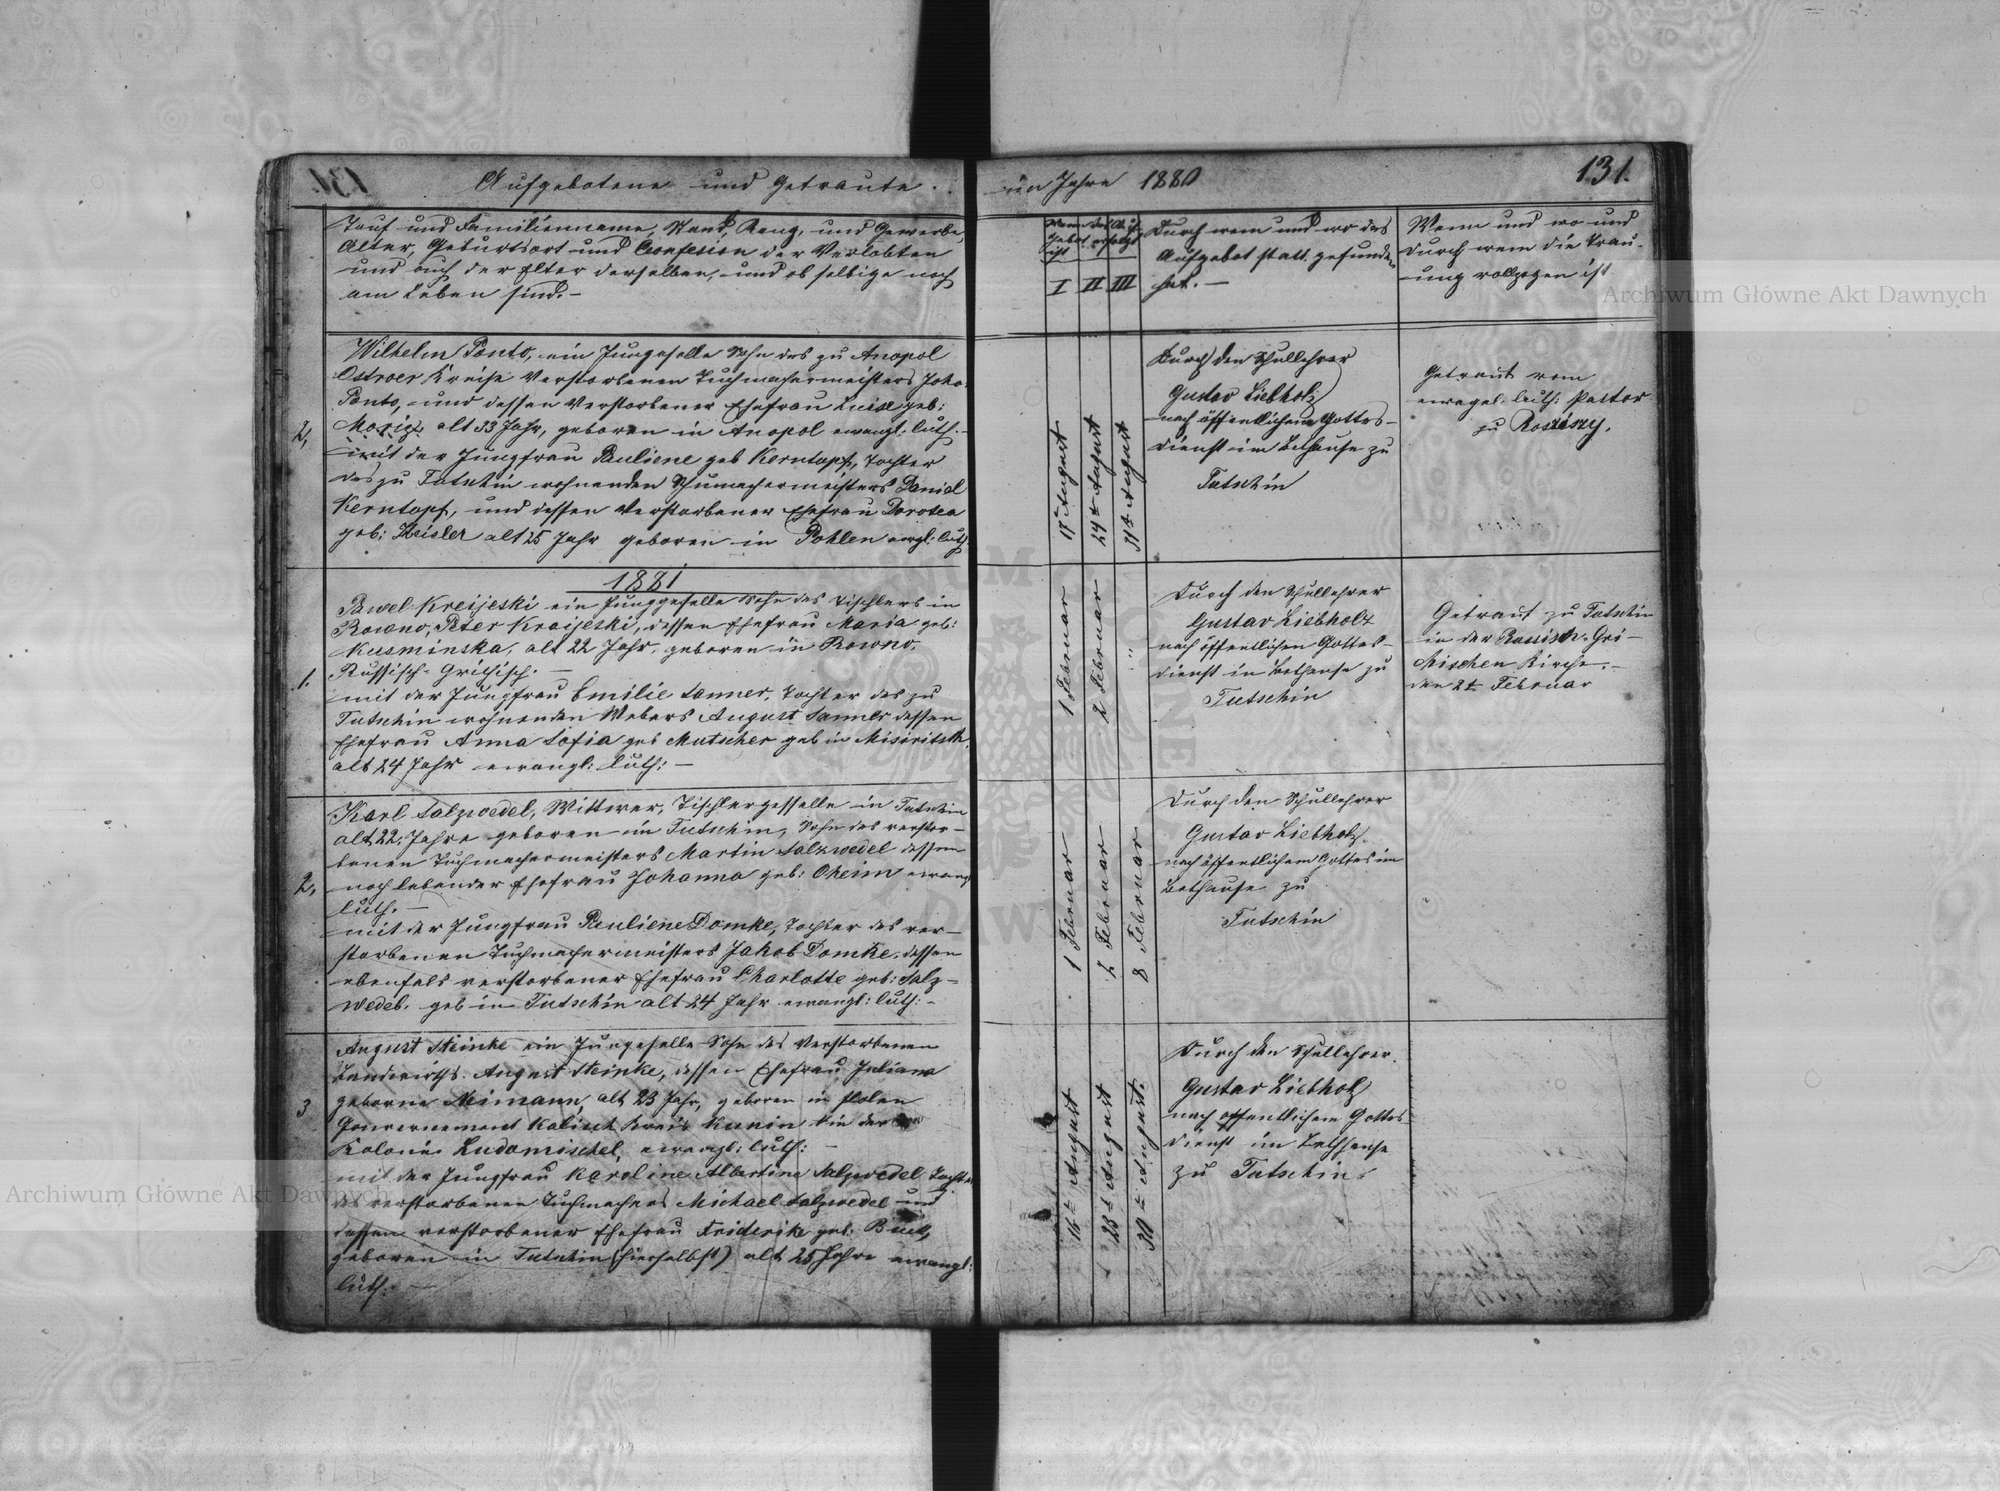 131.
Aufgebotene und Getraute.
im Jahre 1880
Tauf und Familienname, Stand, Rang, und Gewerbe,
Alter, Geburtsort und Confesion der Verlobten
und auch der Elter derselben, und ob selbige noch
am Leben sind. -
I II III
Durch wem und wo das
Aufgebot statt gefunden
hat. -
Wenn und wo und
durch wem die Trau-
ung vollzogen ist
2,
Wilhelm Ponto, ein Jungeselle Sohn des zu Anopol
Ostroer Kreise Verstorbenen Tuchmachermeisters Joha.
Ponto, und dessen Verstorbener Ehefrau Luise geb:
alt 33 Jahr, geboren in Anopol ewangl: luth. -
mit der Jungfrau Pauliene geb Kerntopf, Tochter
des zu Tutschin wohnenden Schumachermeisters Daniel
Kerntopf, und dessen Verstorbener Ehefrau Dorotea
geb: Zeisler alt 25 Jahr geboren in Pohlen ewgl: luth
August
24t August
31t August
Durch den Schullehrer
Gustav Liebholz
nach öffentlichem Gottes-
dienst im Bethause zu
Tutschin
Getraut vom
ewagel. luth: Pastor
zu Rosziszy.
1881
1.
Pawel Kreijeski ein Junggeselle Sohn des Tischlers in
Rowno, Peter Kraijeski, dessen Ehefrau Maria geb:
Kusminska, alt 22 Jahr, geboren in Rowno.
Russisch-Grichisch. -
mit der Jungfrau Emilie Sanner, Tochter des zu
Tutschin wohnenden Webers August Sanner dessen
Ehefrau Anna Sofia geb Mutscher geb in Misiritsch,
alt 24 Jahr ewangl: luth: -
1 Februar
2 Februar
Durch den Schullehrer
Gustav Liebholz
nach öffentlichen Gottes-
dienst in Bethause zu
Tutschin
Getraut zu Tutschin
in der Russisch-Gri-
chischen Kirche. -
den 2t Februar
2,
Karl Salzwedel, Wittwer, Tischlergesselle in Tutschin
alt 22, Jahre geboren im Tutschin, Sohn des verstor-
benen Tuchmachermeisters Martin Salzwedel dessen
noch lebender Ehefrau Johanna geb: Oheim ewang
luth. -
mit der Jungfrau Pauliene Domke, Tochter des ver-
storbenen Tuchmachermeisters Jakob Domke, dessen
ebenfals verstorbener Ehefrau Charlotte geb: Salz-
wedel. geb in Tutschin alt 24 Jahr ewangl: luth: -
1 Februar
2 Februar
8 Februar
Durch den Schullehrer
Gustav Liebholz.
nach öffentlichem Gottes im
Bethause zu
Tutschin
3
August Steinke ein Jungeselle Sohn des Verstorbenen
Landwirths. August Steinke, dessen Ehefrau Juliana
geborne Neimann, alt 23 Jahr, geboren in Polen
Gouvernement Kalisch Kreis Kunin in der
Kolonie Ludomischel, ewangl: luth:
mit der Jungfrau Karoline Albertine Salzwedel Tochter
des verstorbenen Tuchmachers Michael Salzwedel und
dessen verstorbener Ehefrau Friderike geb: Butz
geboren in Tutschin (hierselbst) alt 25 Jahre ewangl:
luth. -
16t August
23t August
30t August.
Durch den Schullehrer.
Gustav Liebholz
nach offentlichem Gottes
dienst im Bethhause
zu Tutschin.
Archiwum Główne Akt Dawnych
Archiwum Główne Akt Dawnych